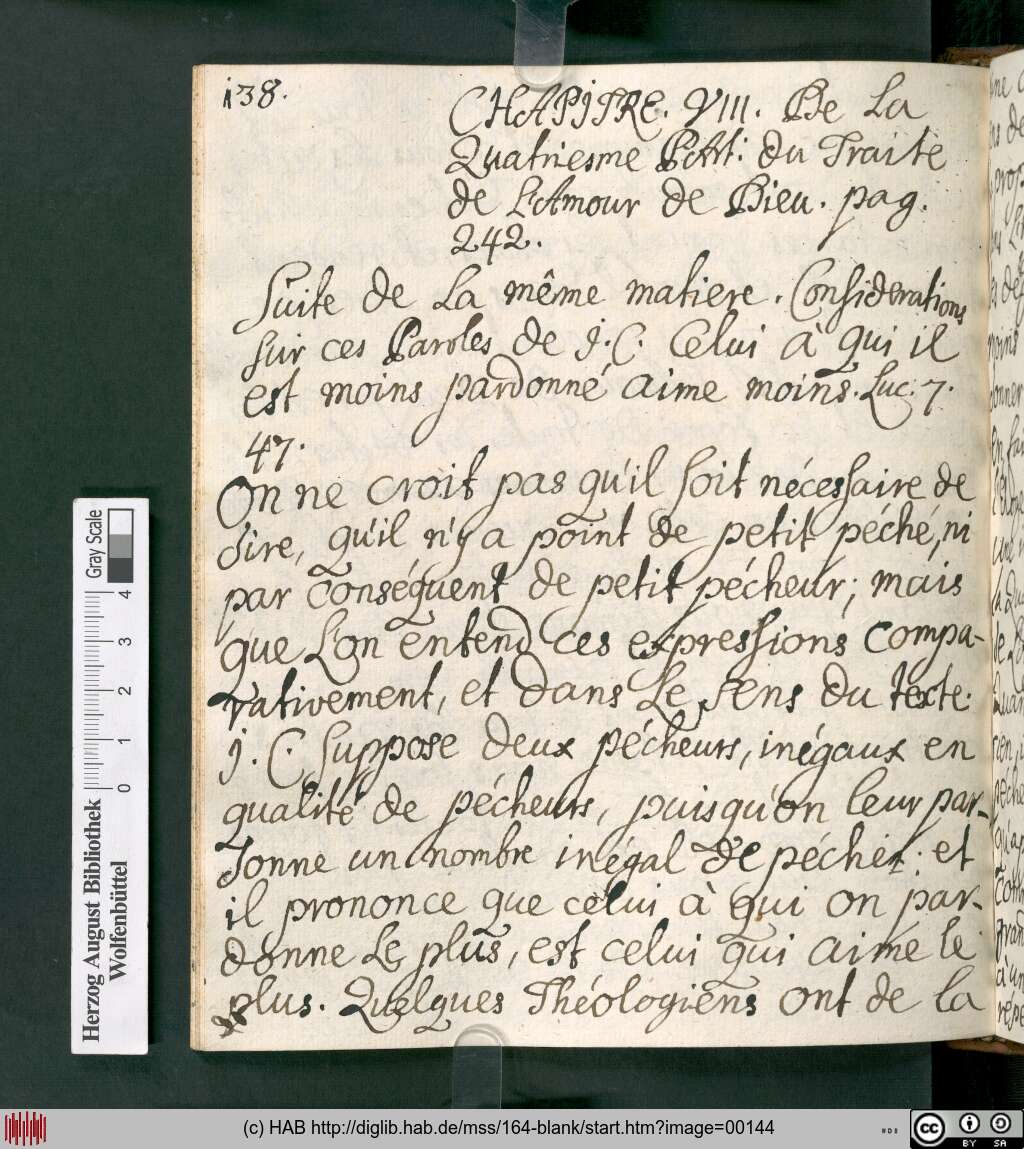 138.
CHAPITRE. VIII. De La
Quatriesme PArt: du Traité
de L'Amour de Dieu. pag.
242.
Suite de La même matiere. Considerations
sur ces Paroles de J. C. Celui à qui il
est moins pardonné aime moins. Luc. 7.
47.
On ne croit pas qu'il soit nécessaire de
dire, qu'il n'y a point de petit péché, ni
par conséquent de petit pécheur; mais
que L'on entend ces expressions compa-
rativement, et dans Le sens du texte.
J. C. suppose deux pécheurs, inégaux en
qualité de pécheurs, puisqu'on leur par-
donne un nombre inégal de péchéz: et
il prononce que celui à qui on par-
donne Le plus, est celui qui aime le
plus. Quelques Théologiens ont de la
Gray Scale
0 1 2 3 4
Herzog August Bibliothek
Wolfenbüttel
(c) HAB http://diglib.hab.de/mss/164-blank/start.htm?image=00144
cc BY SA